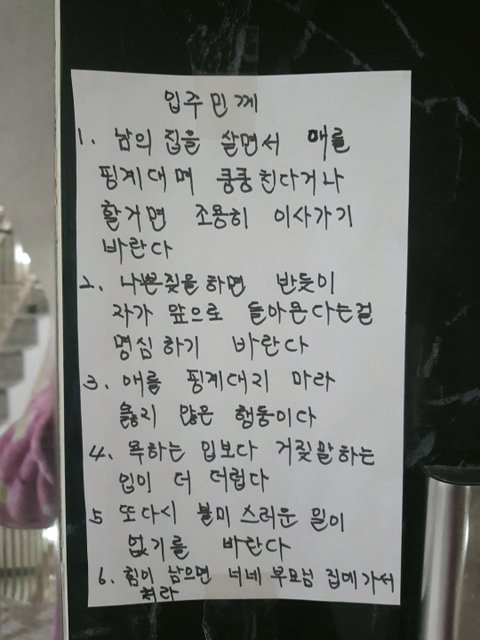 입주민께
1. 남의 집을 살면서 애를
핑계대며 쿵쿵친다거나
활거면 조용히 이사가기
바란다
2. 나쁜짖을하면 반듯이
자가 앞으로 돌아온다는걸
명심하기 바란다
3. 애를 핑계대리 마라
옳지 않은 행동이다
4. 욕하는 입보다 거짖말하는
입이 더 더럽다
5 또다시 불미스러운 일이
없기를 바란다
6. 힘이 남으면 너네 부모님 집에가서
쳐라